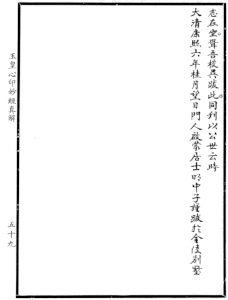 志在空聲吾授具跋此同刊以公世云時
大清康熙六年桂月望日門人啟蒙居士明中子種跋於金陵別墅
玉皇心印妙經真解
五十九